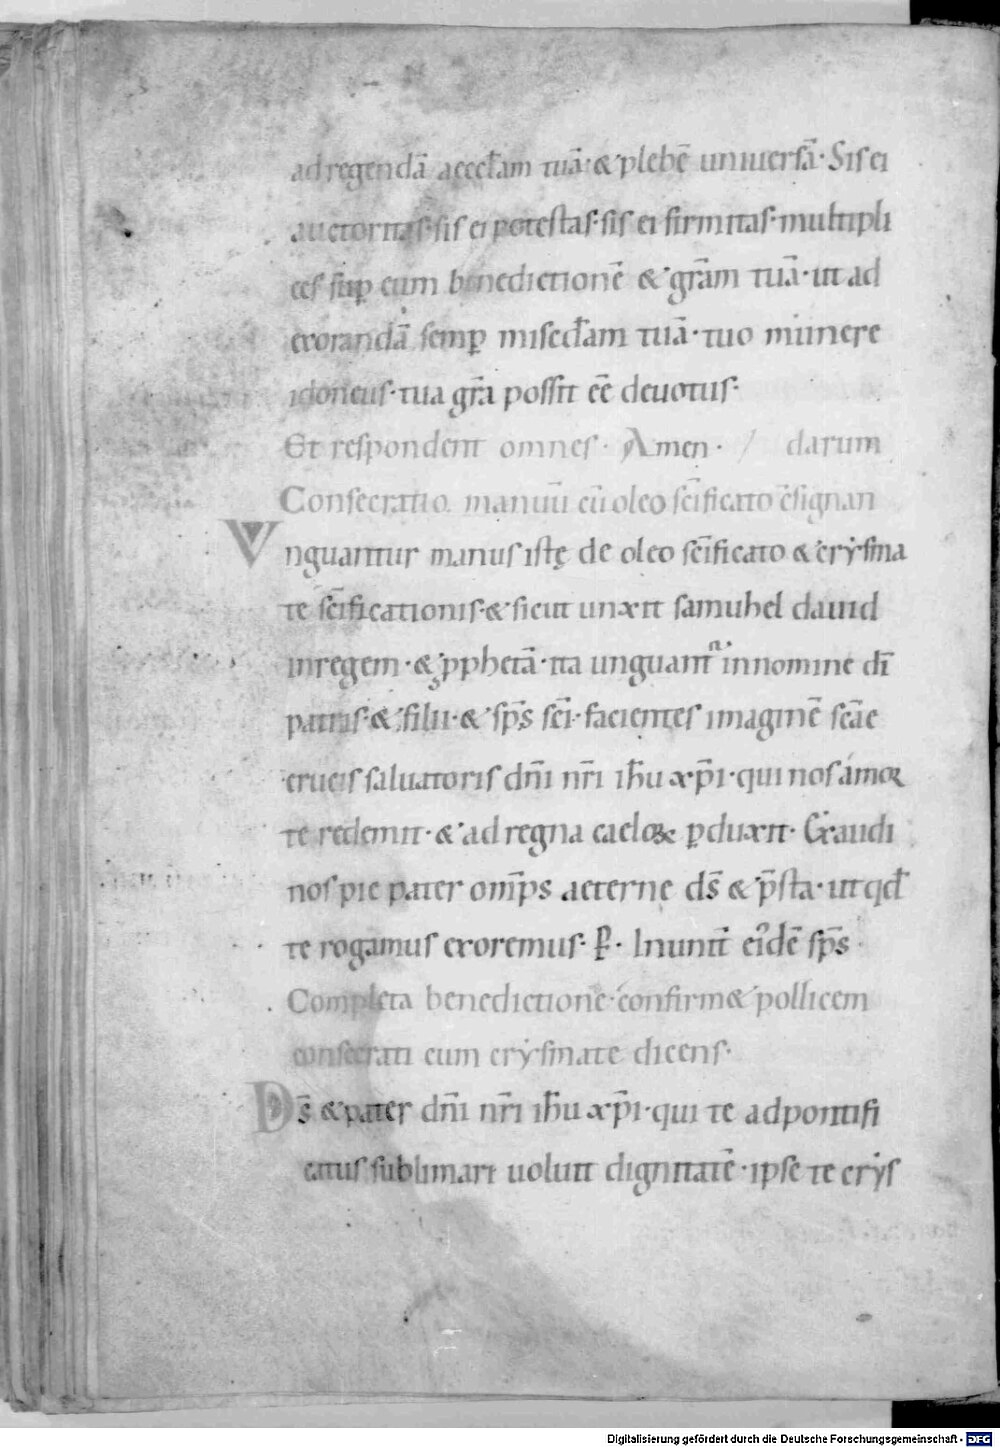 ad regendā aeccl̄am tuā· & plebē uniuersā· Sis ei
auctoritas· sis ei potestas· sis ei firmitas· multipli
ces sup̱ eum benedictionē & gr̄am tuā· ut ad
exorandā semp̱ misedr̄am tuā· tuo munere
idoneus· tua gr̄a possit eē deuotus·
Et respondent omnes· Amen· / darum
Consecratio manuū cū oleo sc̄ificato c̄signan
Vnguantur manus istę de oleo sc̄ificato & crẏsma
te sc̄ificationis· & sicut unxit samuhel dauid
in regem· & ꝓphetā· ita unguant᷑ in nomine dī
patris· & filii· & sp̄s sc̄i· facientes imaginē sc̄ae
crucis saluatoris dn̄i nr̄i ih̄u xp̄i· qui nos a mor
te redemit· & ad regna caeloꝝ p̱duxit· Exaudi
nos pie pater omīps aeterne ds̄ & p̄sta· ut qđ
te rogamus exoremus· P̱· In unit̄ eīdē sp̄s
Completa benedictione· confirm& pollicem
consecrati cum crẏsmate dicens·
Ds̄ & pater dn̄i nr̄i ih̄u xp̄i· qui te ad pontifi
catus sublimari uoluit dignitatē· ipse te crẏs
Digitalisierung gefördert durch die Deutsche Forschungsgemeinschaft - DFG